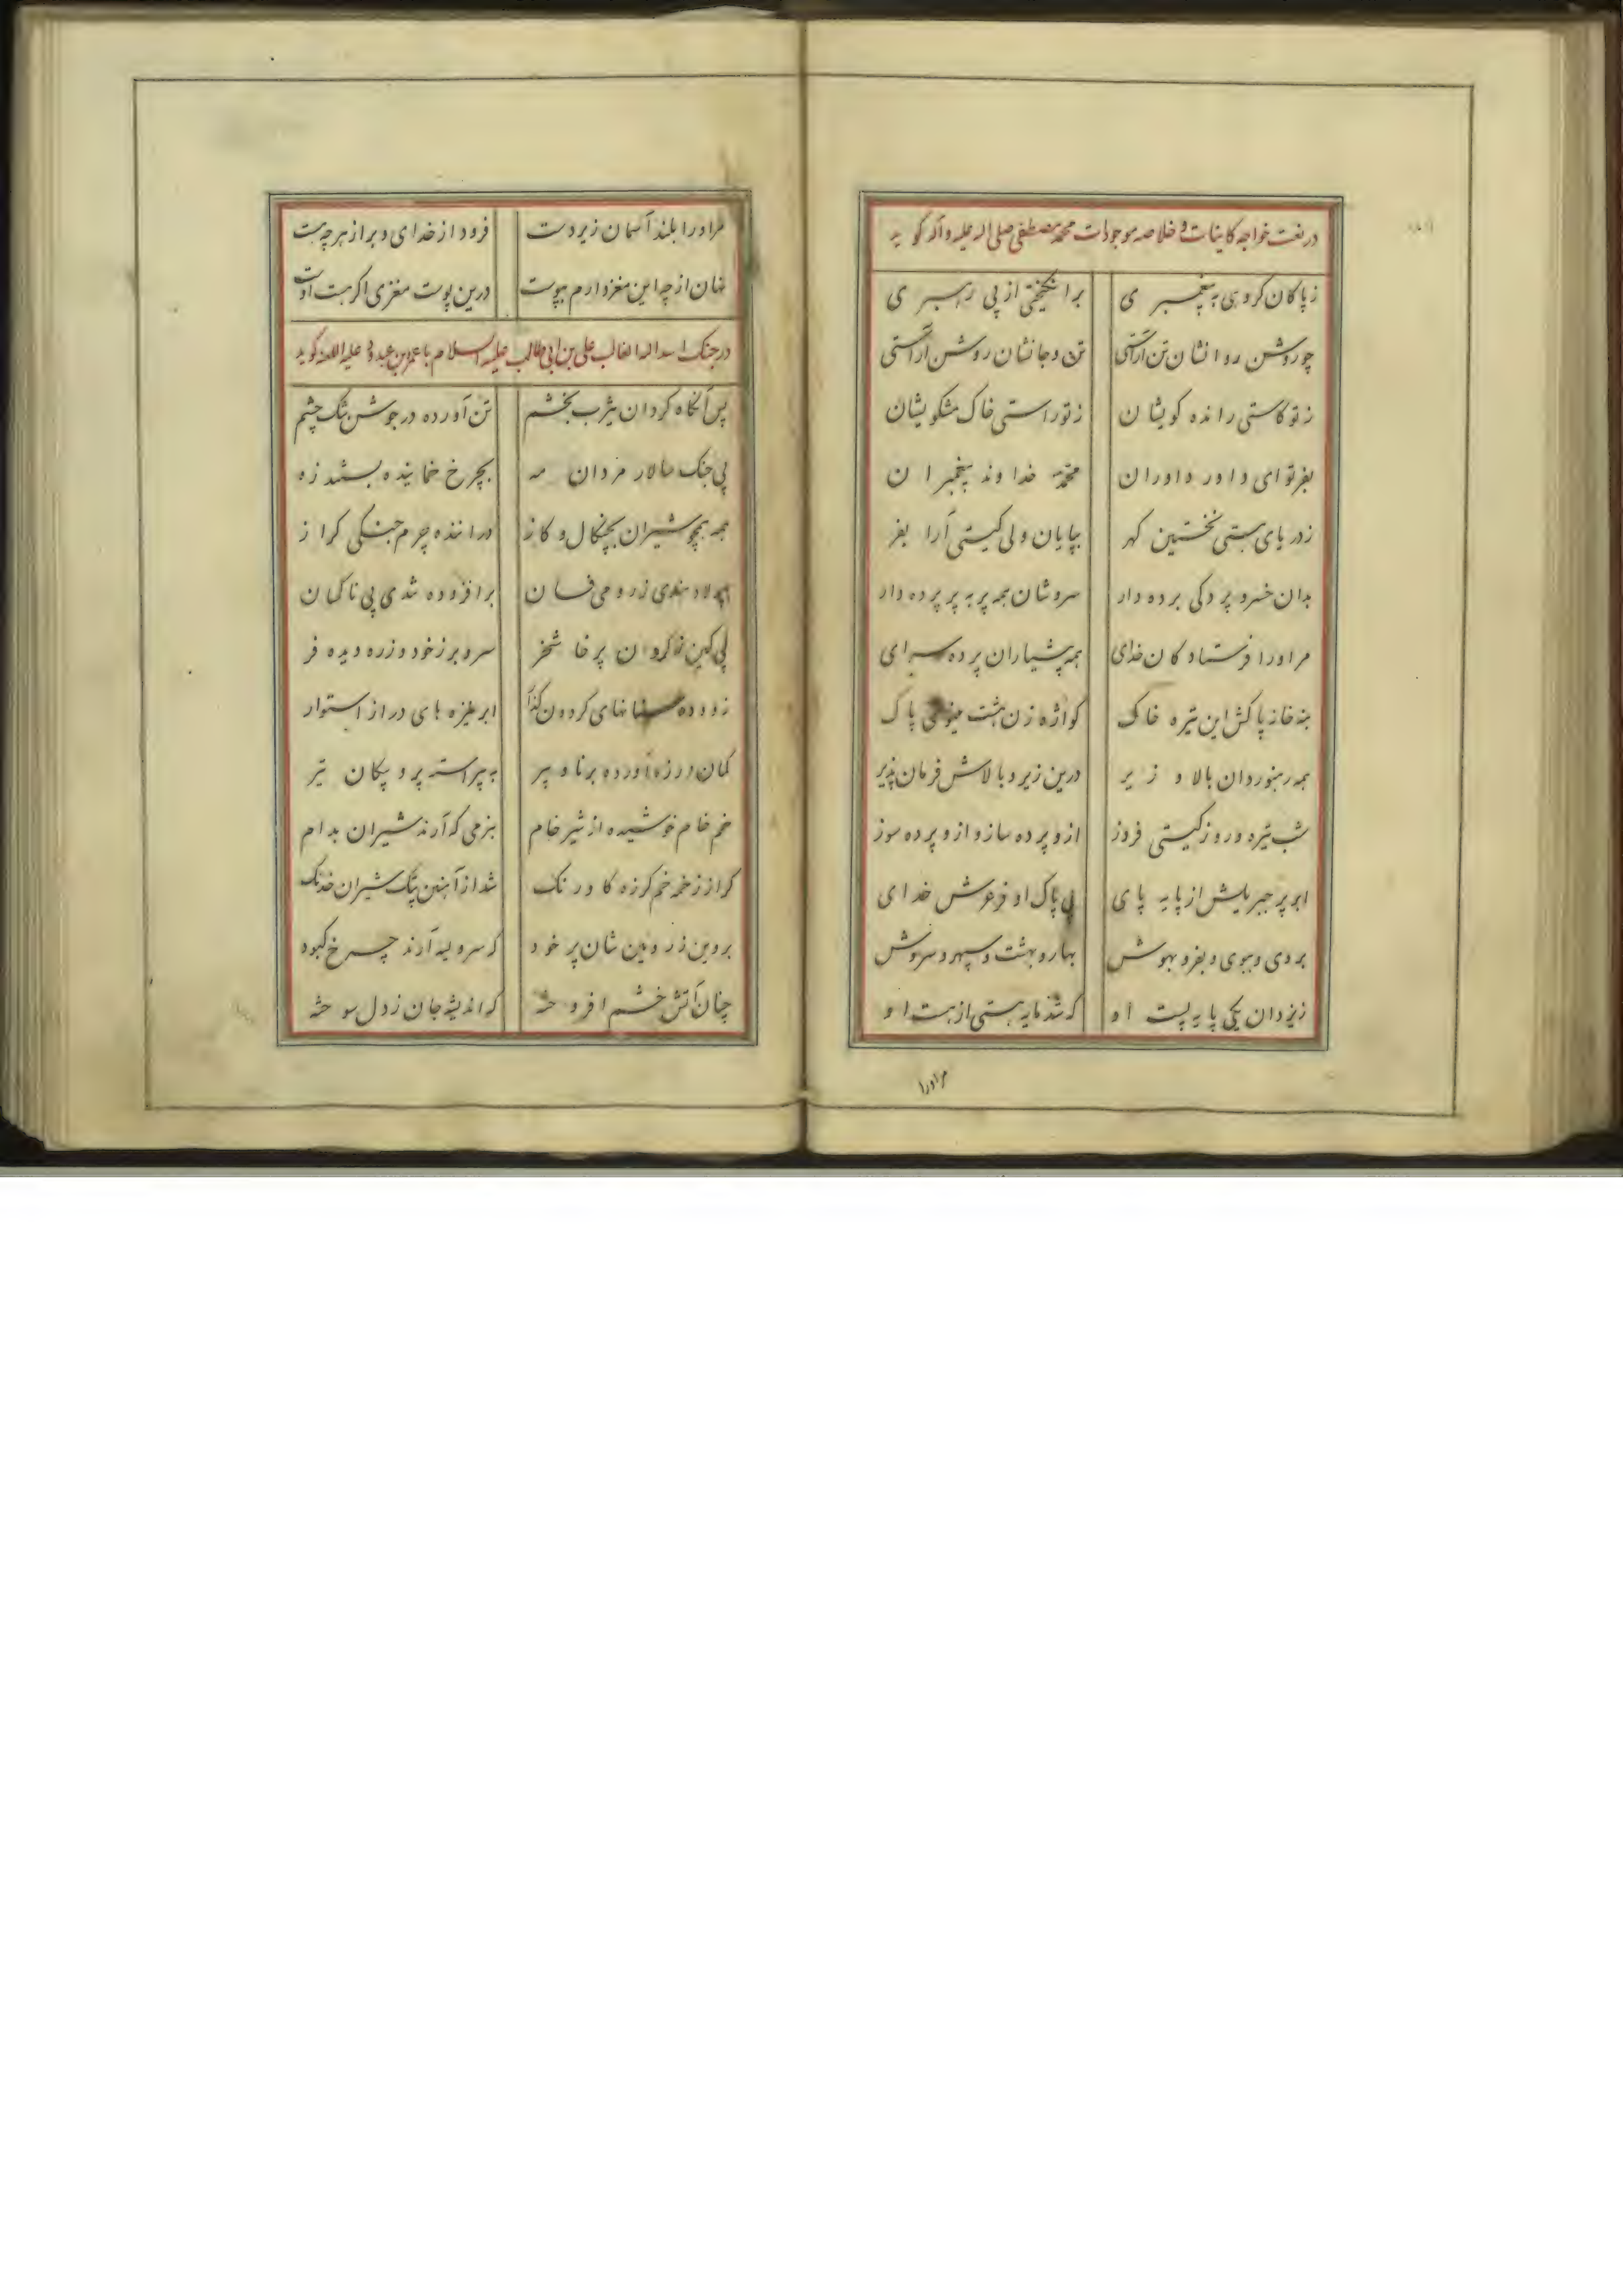 در نعت خواجه کاینات و خلاصه موجودات محمد مصطفی صلی اله علیه و آله گوید
زپاکان کروهی به پیغمبری برانگیختی از پی رهبری
چو روشن روانشان تن آراستی تن و جانشان روشن آراستی
ز تو کاستی رانده کویشان ز تو راستی خاک مشکویشان
بفر تو ای داور داوران محمد خداوند پیغمبران
ز دریای هستی نخستین کهر بپایان ولی کیتی آرا بفر
بدان خسرو پردکی برده دار سروشان همه پر به پر پرده دار
مر او را فرستادکان خدای همه پیشیاران پرده سرای
بنه خانه پاکش این تیره خاک کواژه زن هشت مینوی پاک
همه رهنوردان بالا و زیر درین زیر و بالاش فرمان پذیر
شب تیره و روز کیتی فروز ازو پرده ساز و ازو پرده سوز
ابر پر جبریلش از پایه پای پی پاک او فر عرش خدای
بروی و ببوی و بفر و بهوش بهار و بهشت و سپهر و سروش
ز یزدان یکی پایه پست او که شد مایه هستی از هست او
مر او را
مر او را بلند آسمان زیر دست فرود از خدای و بر از هر چه هست
نهان از چه این مغز دارم بپوست درین پوست مغزی اکر هست اوست
در جنک اسد اله الغالب علی بن ابی طالب علیه السلام با عمر بن عبدود علیه اللعنه کوید
پس آنکاه کردان یثرب بخشم تن آورده در جوشن تنک چشم
پی جنک سالار مردان مه بچرخ خمانیده بستند زه
همه همچو شیران بچنکال و کاز دراننده چرم جنکی کراز
هندی زدوده فسان برافزوده شدی پی ناکسان
پی کین کردان پرخاشخر سر و برز خود و زره دیده فر
زدوده سنانهای کردون کذار ابر نیزه های دراز استوار
کمان در زه آورده برنا و پیر به پیراسته پر و پیکان تیر
خم خام خوشیده از شیر خام بزمی که آرند شیران بدام
کراز زخمه خم کرزه کاو رنک شد از آهنین چنک شیران خدنک
بروین زد شان پر خود که سر و سه آرند چرخ کبود
چنان آتش خشم افروخته که اندیشه جان ز دل سوخته